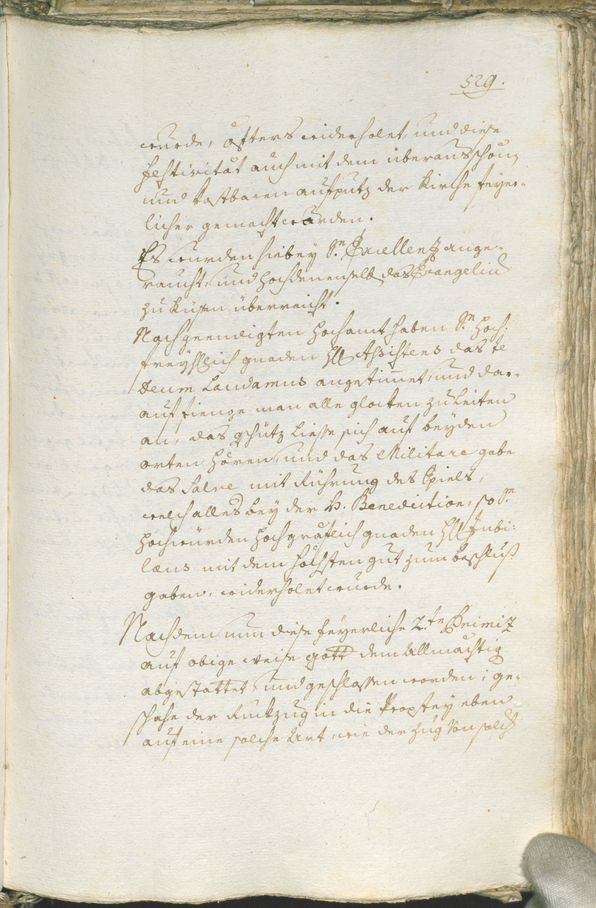 529.
wurde, öfters widerholet, und diese
festivität auch mit dem überaus schön,
und kostbaren aufputz der Kirche feyer-
licher gemacht worden.
Es wurden hiebey Sr. Excellentz ange-
raucht, und hochdenenselb. das Evangeliu
zu küssen überreicht.
Nach geendigten hochamt haben Sr. hoch-
freyhlich gnaden H. Assistens das te
Deum Laudamus angestimet, und dar-
auf fienge man alle glocken zu leiten
an, das gschütz liesse sich auf beyden
orten hören, und das Militare gabe
das Salve mit Rührung des Spiels,
welch alles bey der H. Benediction, so Sr.
hochwürden hochgräflich gnaden H. Jubi-
læus mit dem höchsten gut zum beschluß
gaben, widerholet wurde.
Nachdem nun diese feyerliche 2.te Primiz
auf obige weise gott dem allmächtig
abgestattet, und geschlossen worden, ge-
schahe der Ruckzug in die Propstey eben
auf eine solche Art, wie der Zug von solch